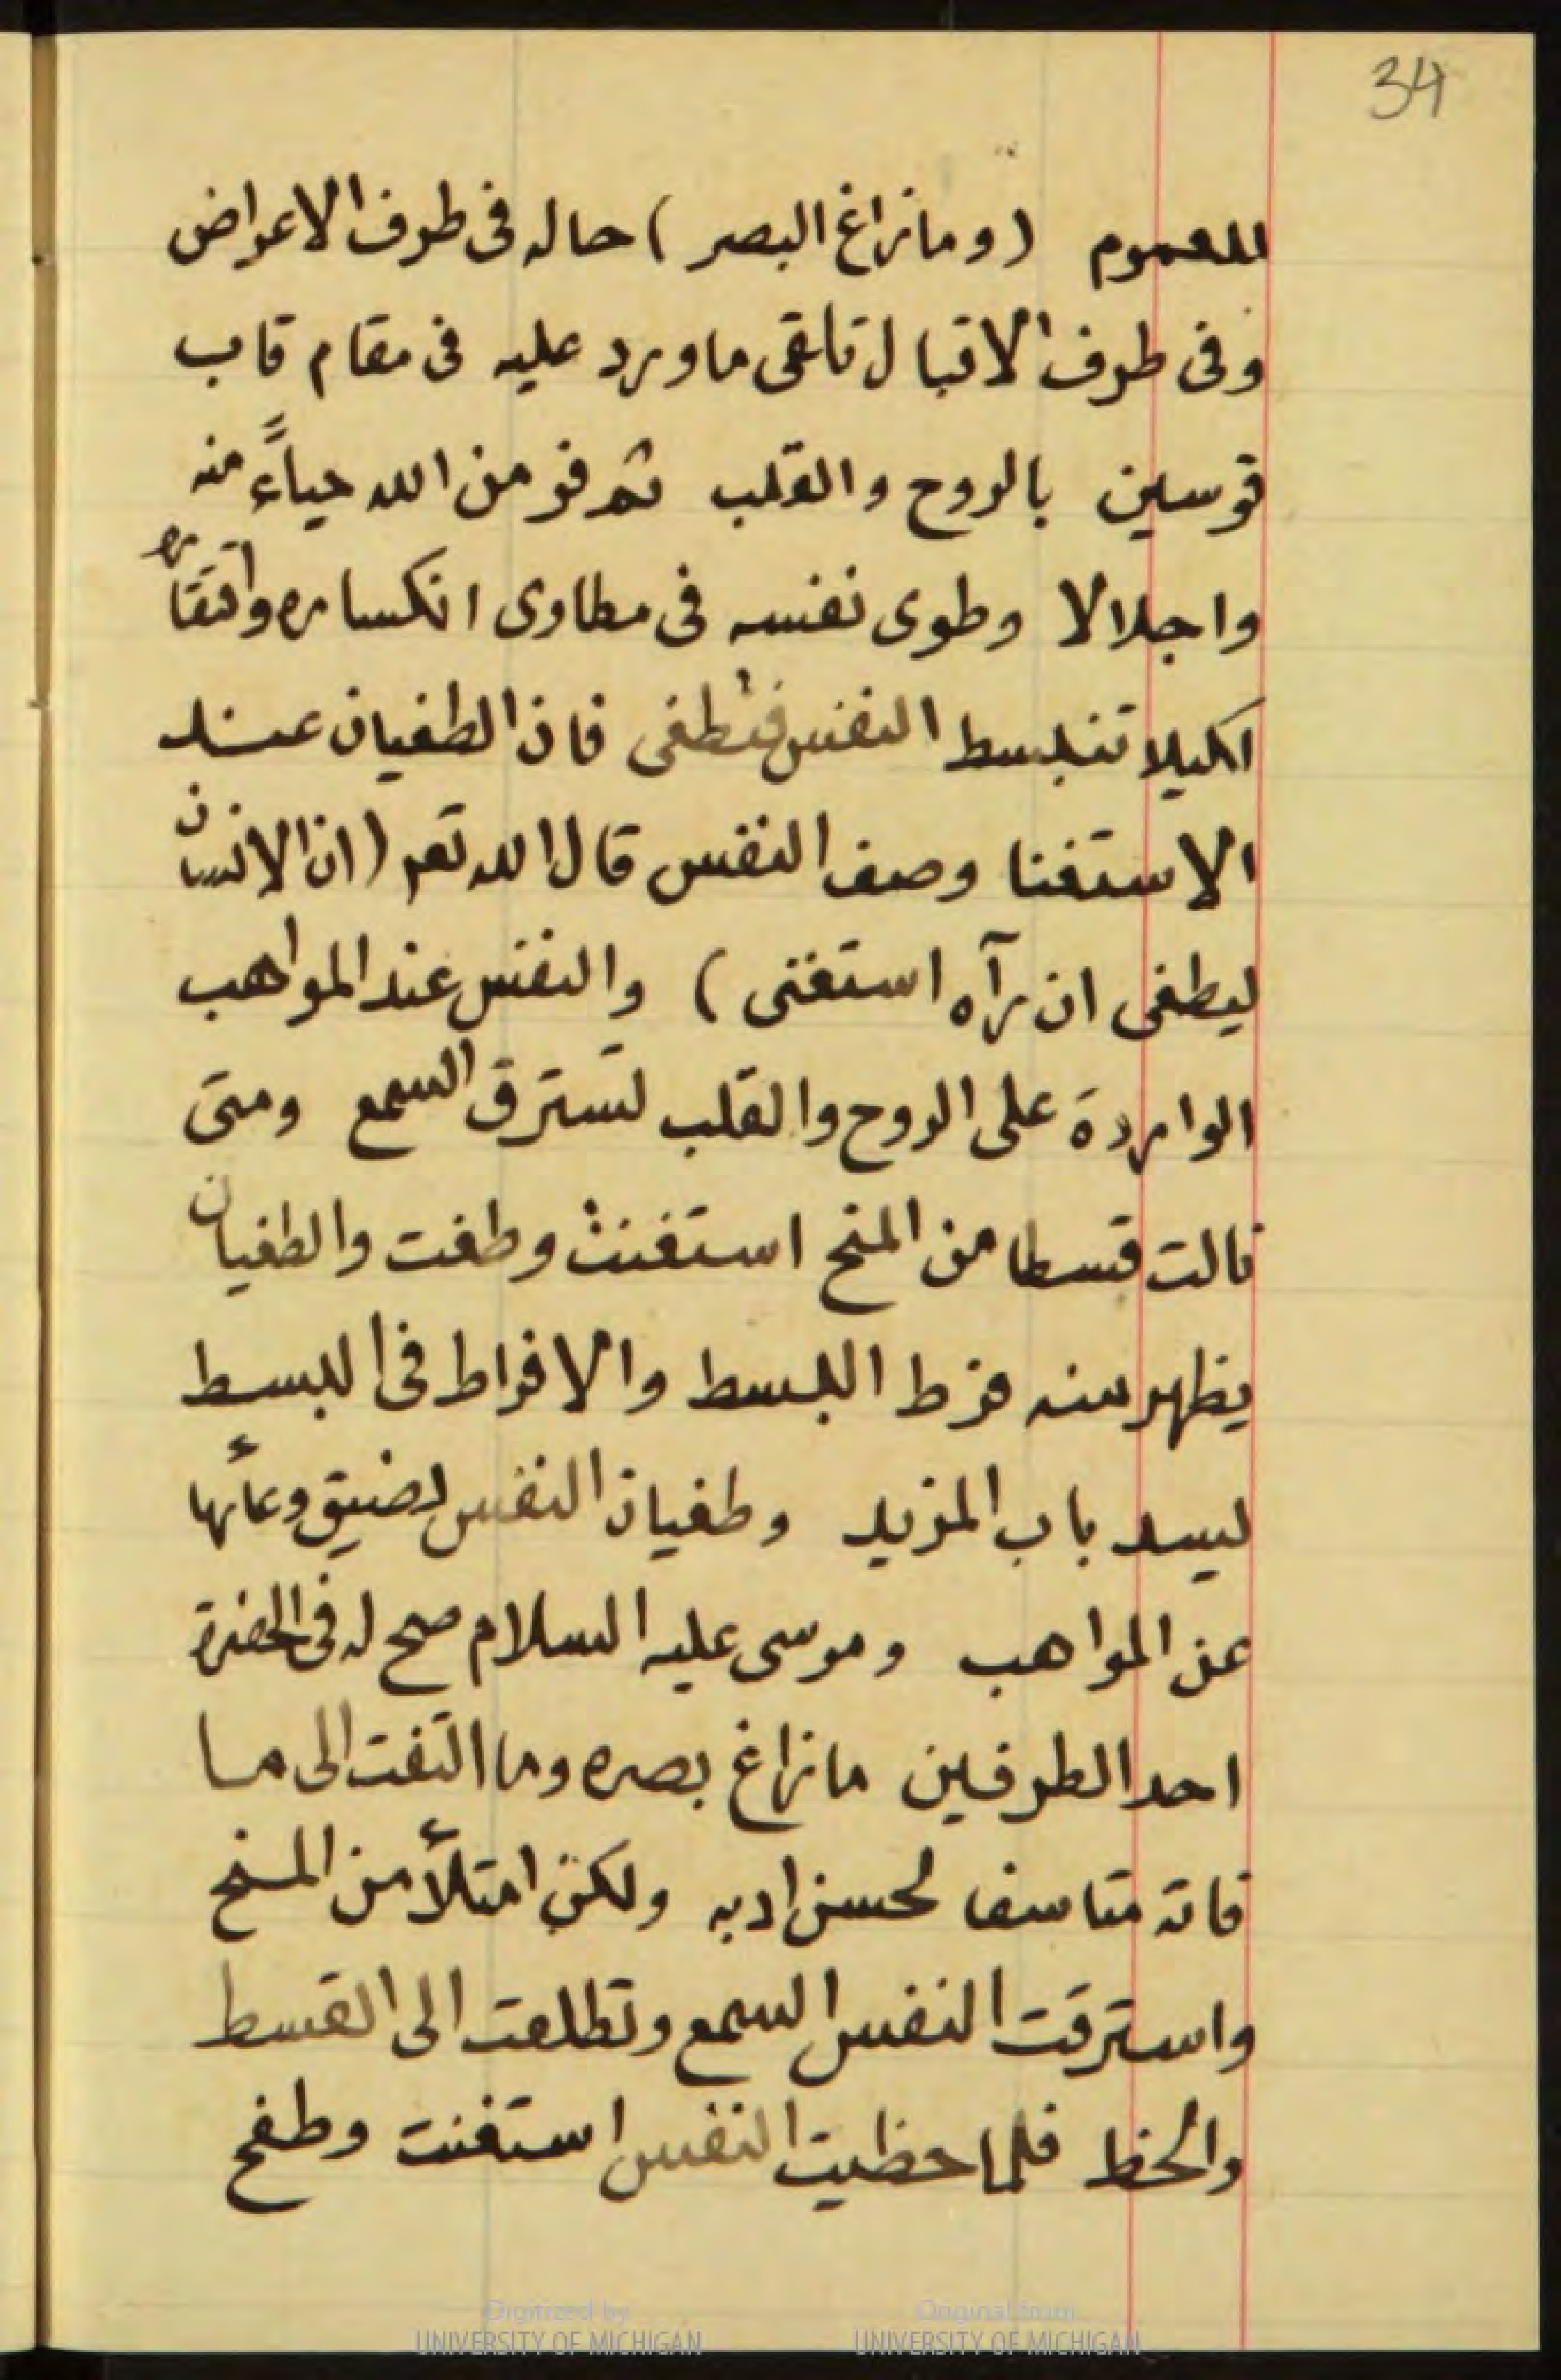 34
للعموم (وما زاغ البصر) حاله فى طرف الاعراض
وفى طرف الاقبال تلقى ما ورد عليه فى مقام قاب
قوسين بالروح والقلب ثم فر من الله حياءً منه
واجلالا وطوى نفسه فى مطاوى انكساره وافتقاره
اكيلا تنبسط النفس فتطغى فان الطغيان عند
الاستغنا وصف النفس قال الله تعم (ان الانسان
ليطغى ان رآه استغنى) والنفس عند المواهب
الواردة على الروح والقلب تسترق السمع ومتى
نالت قسطا من المنح استغنت وطغت والطغيان
يظهر منه فرط البسط والافراط فى البسط
ليسد باب المزيد وطغيان النفس لضيق وعائها
عن المواهب وموسى عليه السلام صح له فى الحضرة
احد الطرفين ما زاغ بصره وما التفت الى ما
فاته متاسفا لحسن ادبه ولكن امتلأ من المنح
واسترقت النفس السمع وتطلعت الى القسط
والحظ فلما حظيت النفس استغنت وطفح
Digitized by UNIVERSITY OF MICHIGAN
Original from UNIVERSITY OF MICHIGAN